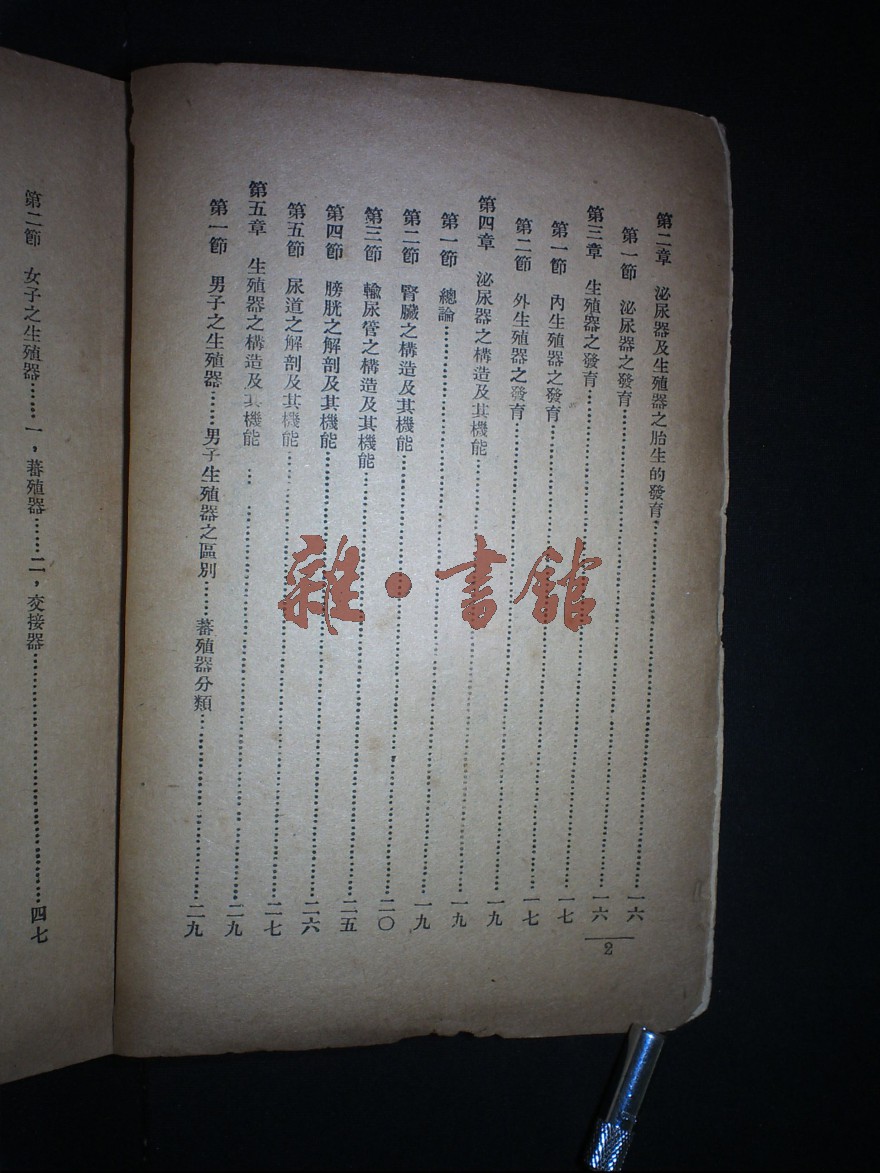 第二章 泌尿器及生殖器之胎生的發育……一六
第一節 泌尿器之發育……一六
第三章 生殖器之發育……一七
第一節 內生殖器之發育……一七
第二節 外生殖器之發育……一九
第四章 泌尿器之構造及其機能……一九
第一節 總論……一九
第二節 腎臟之構造及其機能……二〇
第三節 輸尿管之構造及其機能……二五
第四節 膀胱之解剖及其機能……二六
第五節 尿道之解剖及其機能……二七
第五章 生殖器之構造及其機能……二九
第一節 男子之生殖器……男子生殖器之區別……蕃殖器分類……二九
2
第二節 女子之生殖器……一，蕃殖器……二，交接器……四七
雜·書館